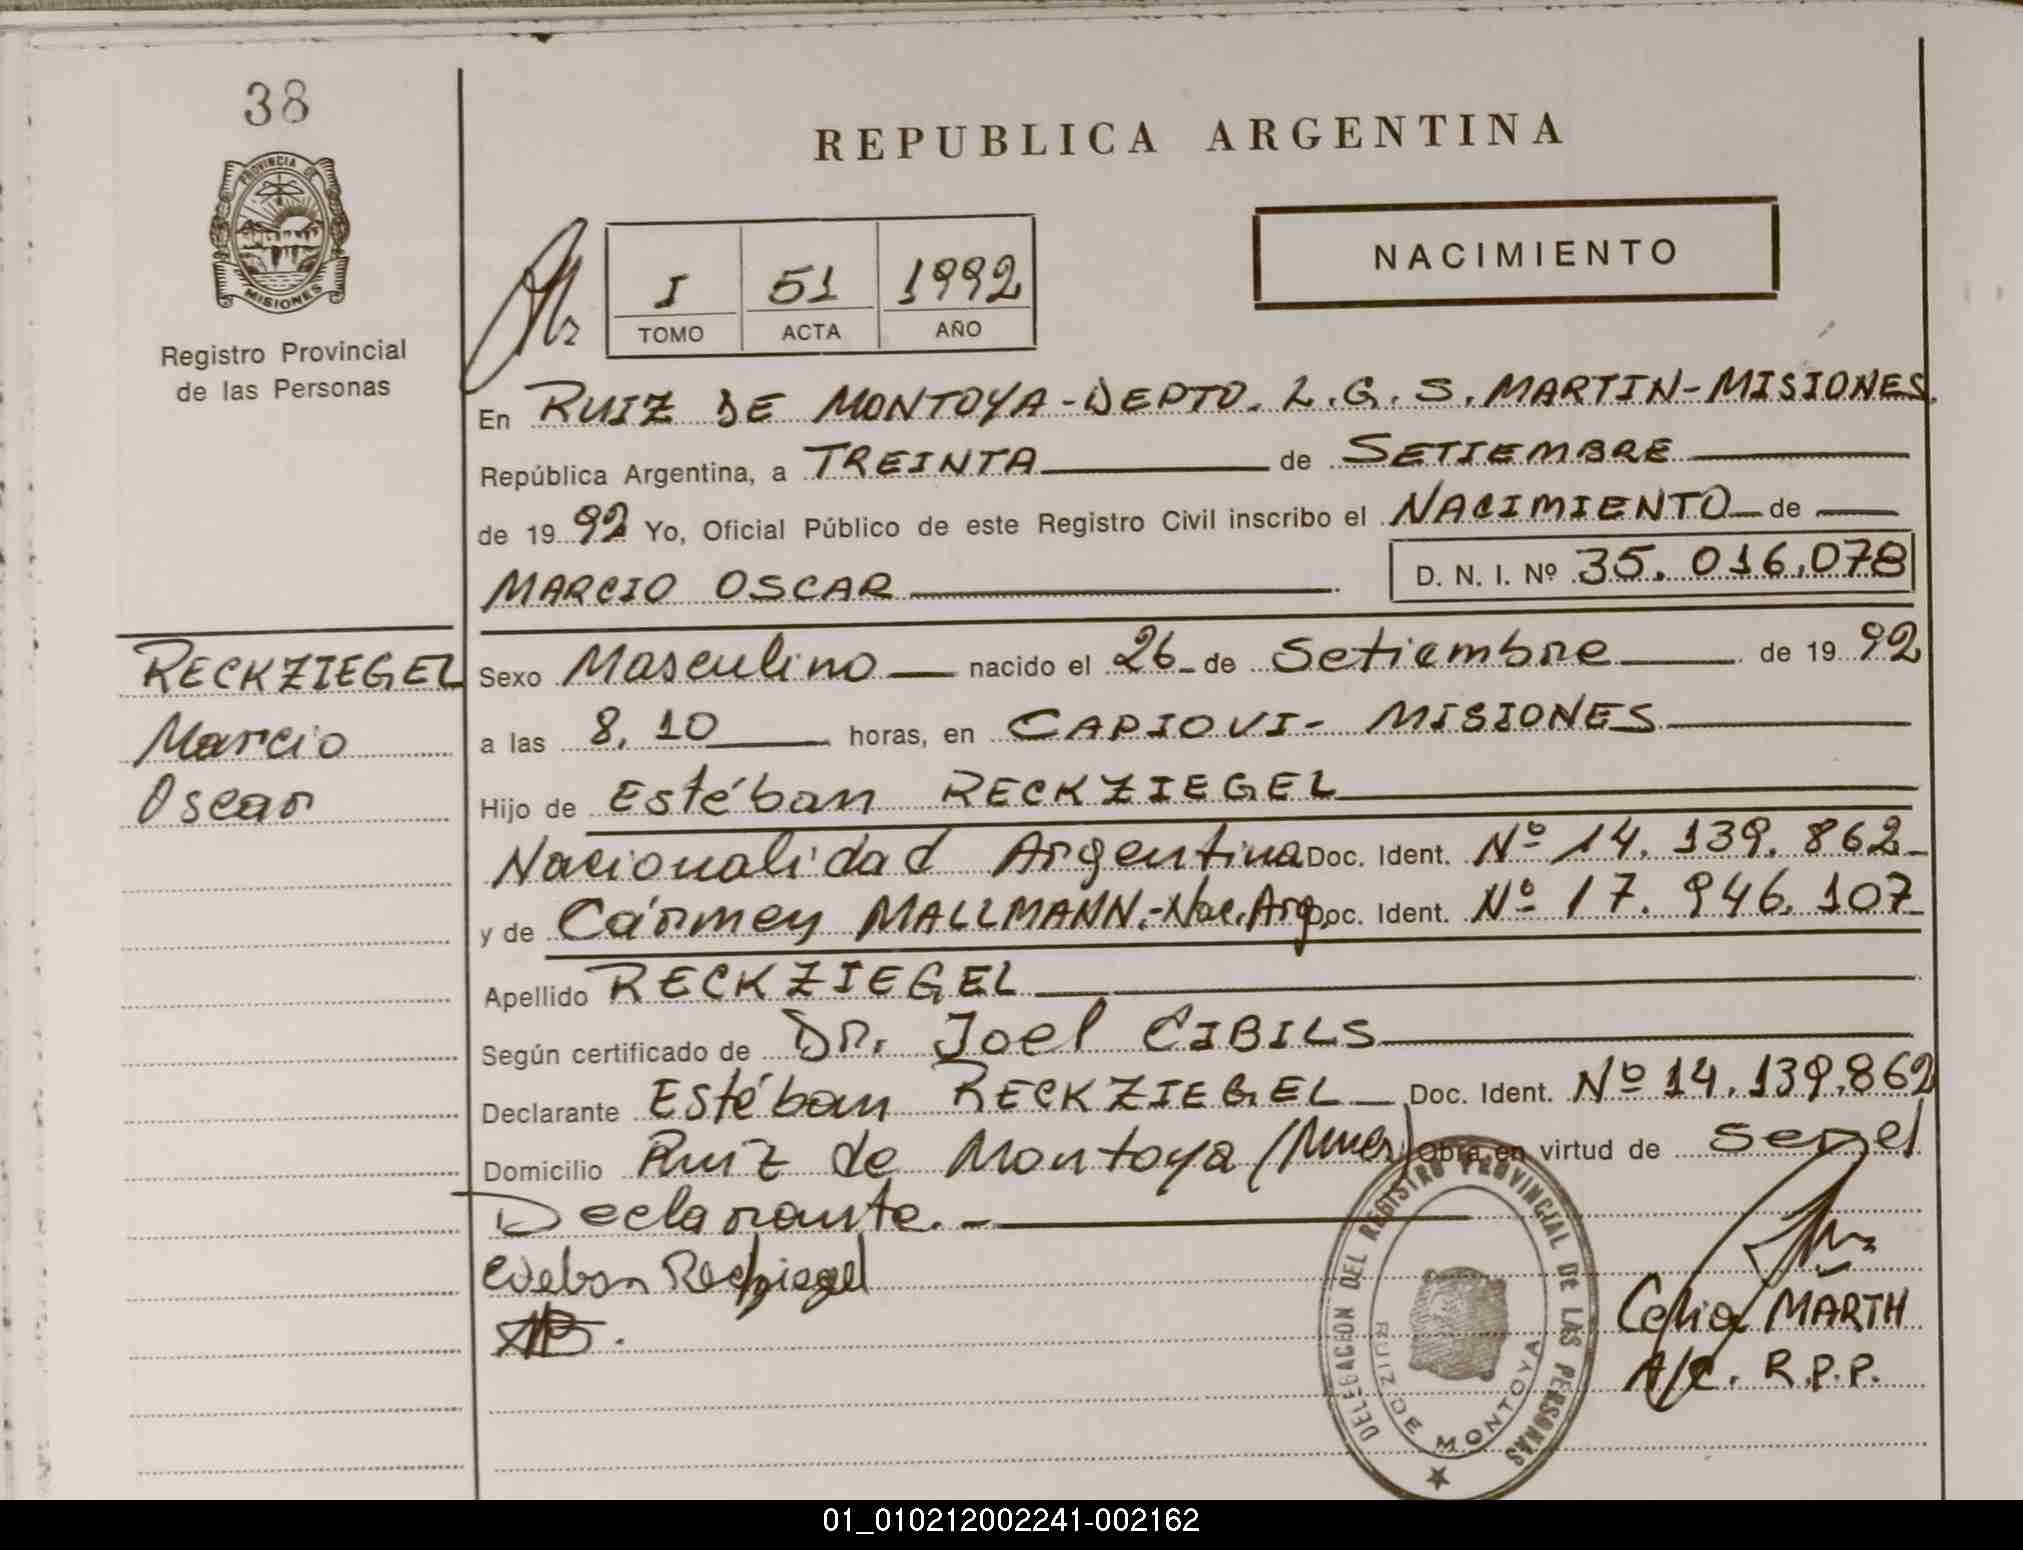 38
PROVINCIA DE
MISIONES
Registro Provincial
de las Personas
REPUBLICA ARGENTINA
I 51 1992
TOMO ACTA AÑO
NACIMIENTO
En RUIZ DE MONTOYA-DEPTO. L.G.S. MARTIN-MISIONES.
República Argentina, a TREINTA de SETIEMBRE
de 1992 Yo, Oficial Público de este Registro Civil inscribo el NACIMIENTO de
MARCIO OSCAR D. N. I. Nº 35.016.078
RECKZIEGEL
Marcio
Oscar
Sexo Masculino nacido el 26 de Setiembre de 1992
a las 8,10 horas, en CAPIOVI- MISIONES
Hijo de Estéban RECKZIEGEL
Nacionalidad Argentina Doc. Ident. Nº 14.139.862
y de Cármen MALLMANN.-Nac.Arg. Doc. Ident. Nº 17.946.107
Apellido RECKZIEGEL
Según certificado de Dr. Joel CIBILS
Declarante Estéban RECKZIEGEL Doc. Ident. Nº 14.139.862
Domicilio Ruiz de Montoya Obra en virtud de ser el
Declarante.-
DELEGACION DEL REGISTRO PROVINCIAL DE LAS PERSONAS
RUIZ DE MONTOYA
Celia MARTH
A/C. R.P.P.
01_010212002241-002162